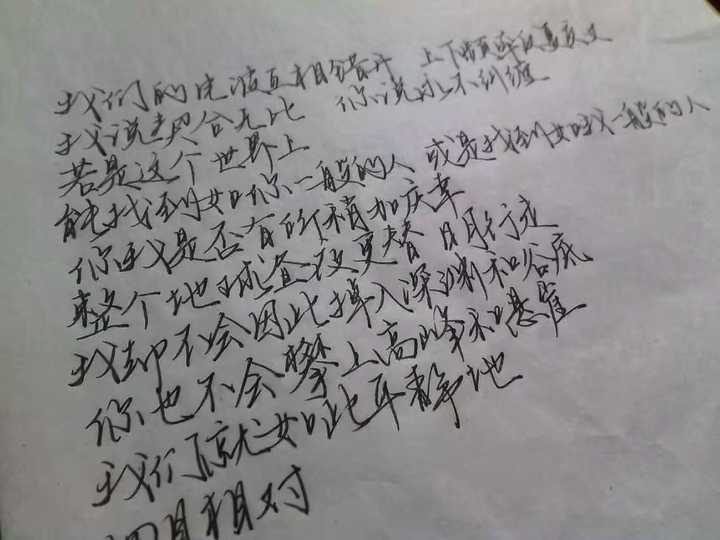 我们的电波互相错开 上下频率没有交叉
我说契合无比 你说永不纠缠
若是这个世界上
能找到如你一般的人 或是找到如我一般的人
你我是否有所稍加庆幸
整个地球昼夜更替 日月行迹
我却不会因此掉入深渊和谷底
你也不会攀上高峰和悬崖
我们就如此平静地
四目相对